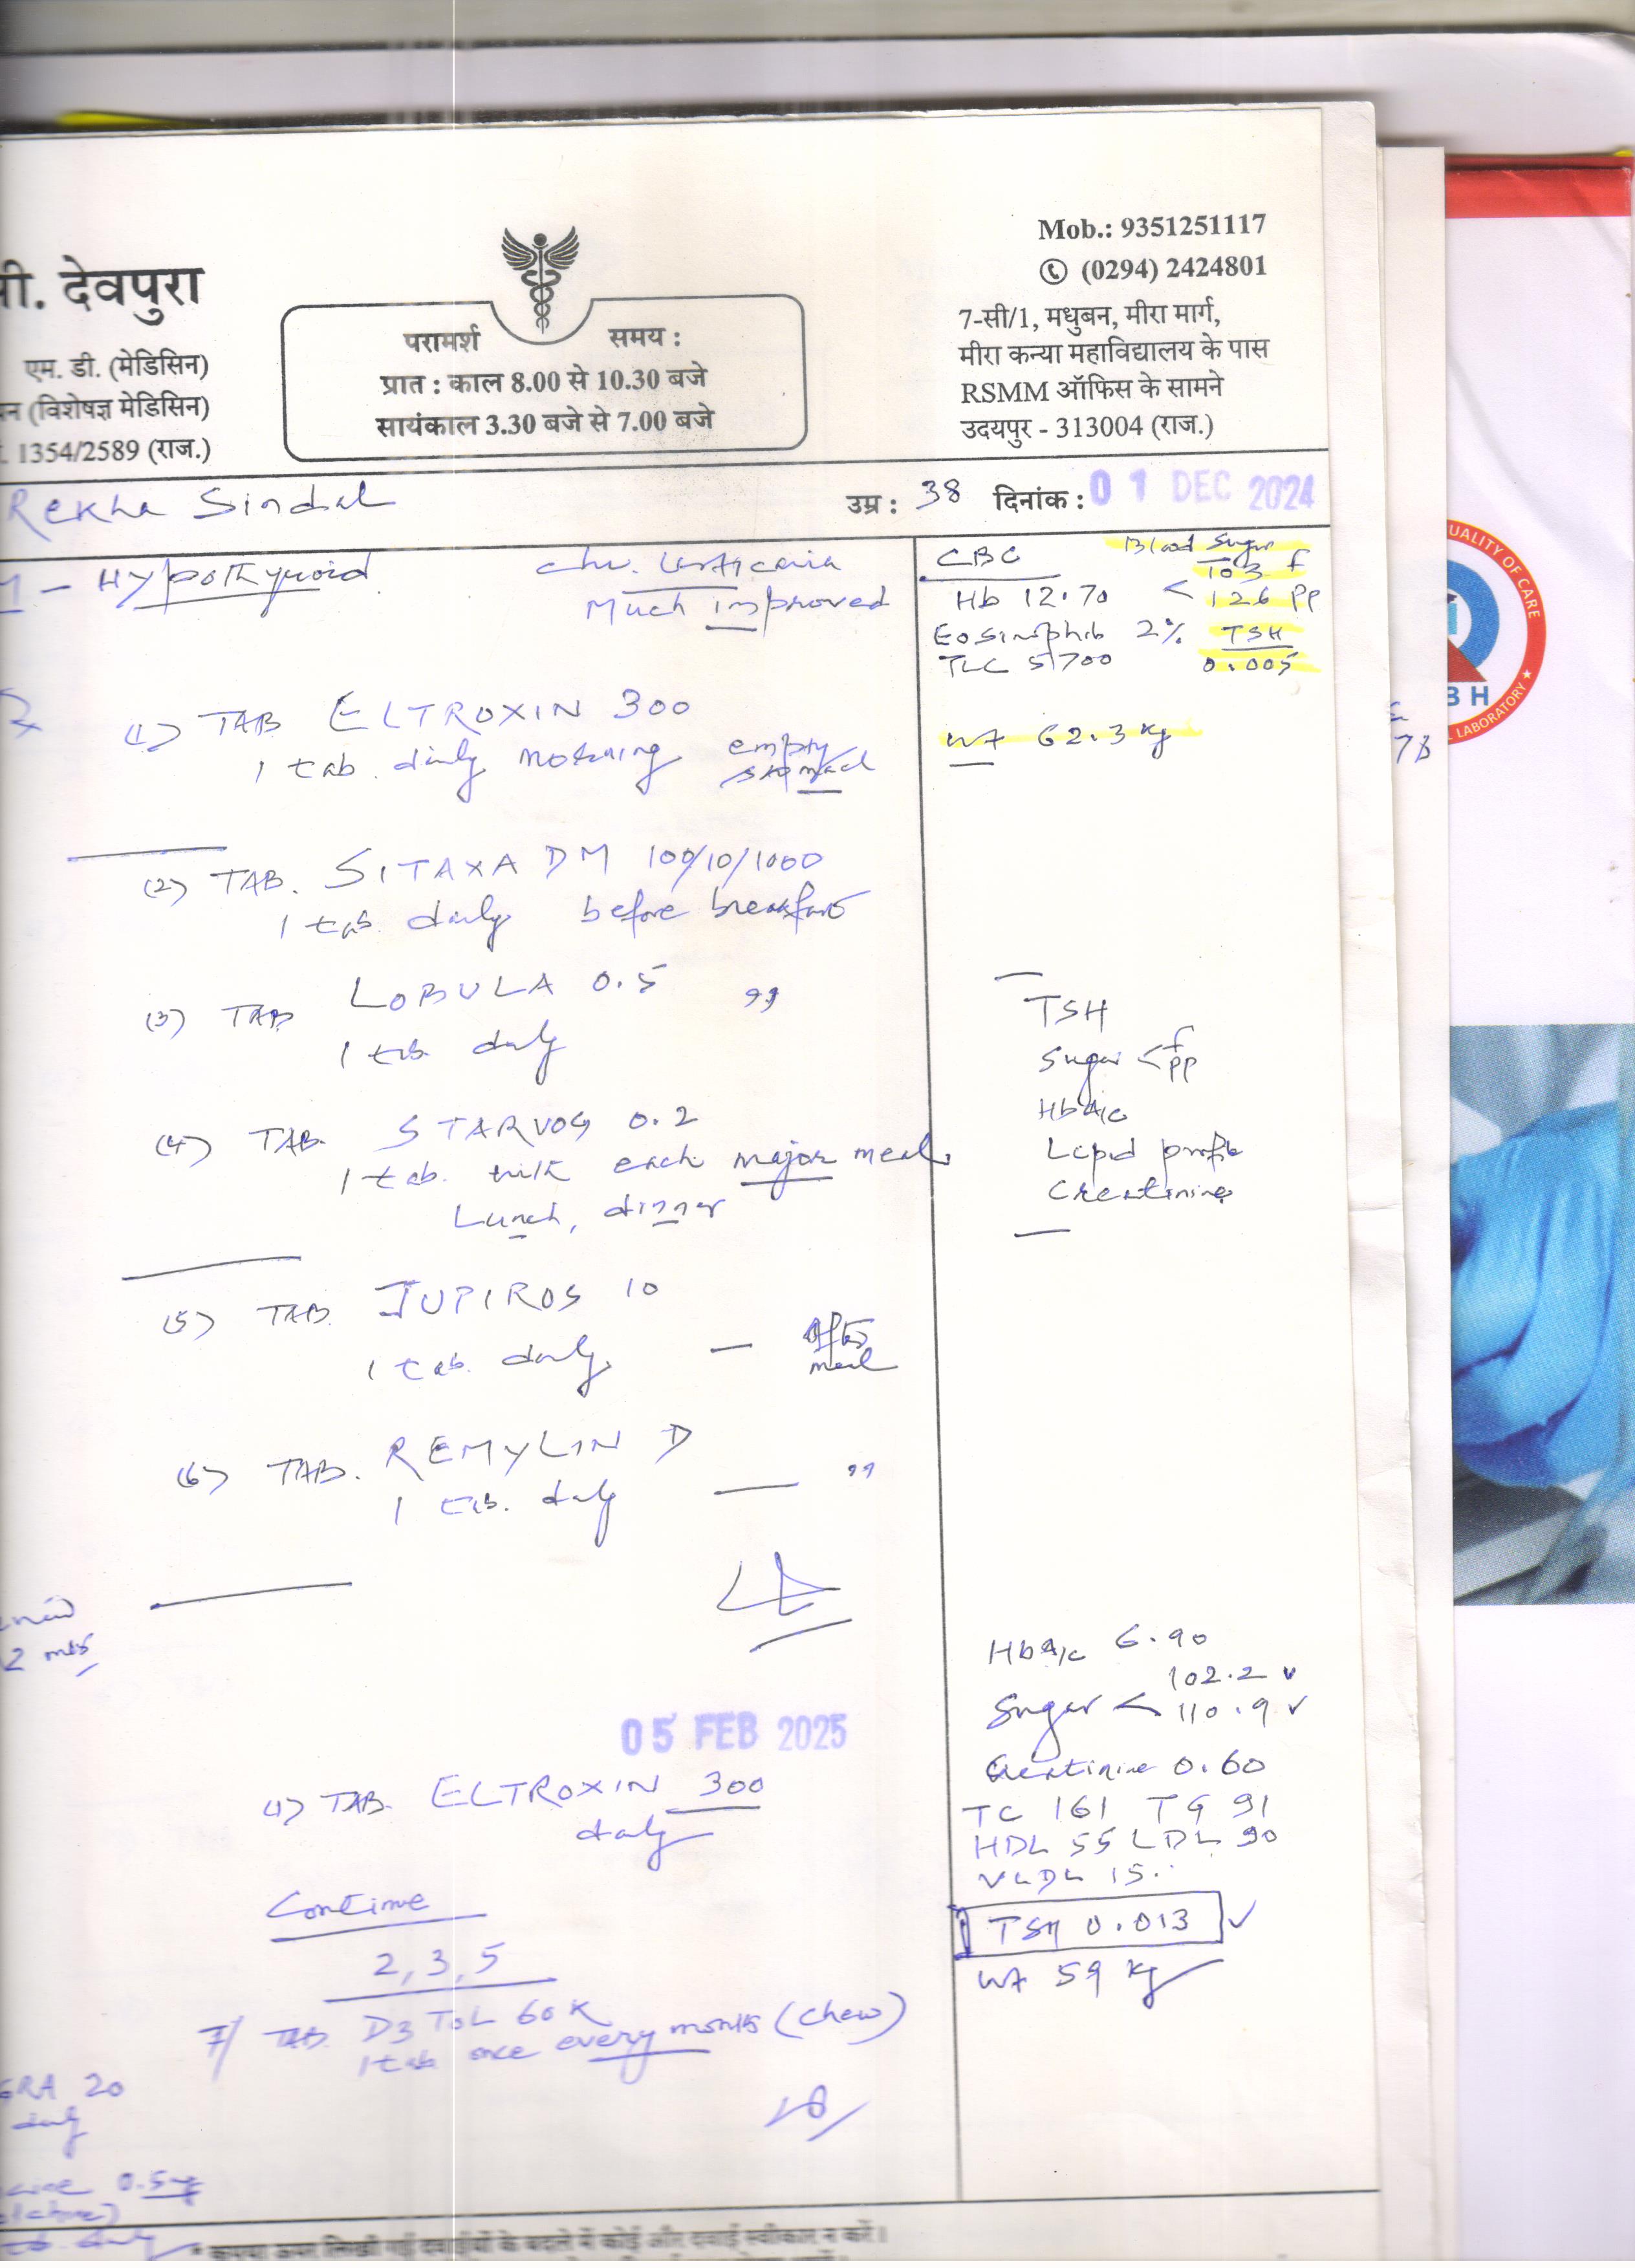 Mob.: 9351251117
(0294) 2424801
7-सी/1, मधुबन, मीरा मार्ग,
मीरा कन्या महाविद्यालय के पास
RSMM ऑफिस के सामने
उदयपुर - 313004 (राज.)
परामर्श समय :
प्रात : काल 8.00 से 10.30 बजे
सायंकाल 3.30 बजे से 7.00 बजे
ी. देवपुरा
एम. डी. (मेडिसिन)
न (विशेषज्ञ मेडिसिन)
. 1354/2589 (राज.)
Rekha Sindal उम्र : 38 दिनांक : 01 DEC 2024
- Hypothyroid
Chr. Urticaria
Much improved
CBC
Hb 12.70
Eosinophils 2%
TLC 5700
Blood Sugar
103 f
< 126 PP
TSH
0.005
Wt 62.3 kg
(1) TAB ELTROXIN 300
1 tab. daily morning empty stomach
(2) TAB. SITAXA DM 100/10/1000
1 tab. daily before breakfast
(3) TAB LOBULA 0.5 ,,
1 tab. daily
(4) TAB. STARVOG 0.2
1 tab. with each major meal
Lunch, dinner
(5) TAB. JUPIROS 10
1 tab. daily — after meal
(6) TAB. REMYLIN D
1 tab. daily — ,,
TSH
Sugar < f
PP
HbA1c
Lipid profile
Creatinine
2 mts
05 FEB 2025
(1) TAB. ELTROXIN 300
daily
Continue
2, 3, 5
7/ TAB. D3 TOL 60K
1 tab once every month (chew)
HbA1c 6.90
Sugar < 102.2
110.9
Creatinine 0.60
TC 161 TG 91
HDL 55 LDL 90
VLDL 15
TSH 0.013
Wt 59 kg
GRA 20
daily
0.5
* कृपया ऊपर लिखी गई दवाईयों के बदले में कोई और दवाई स्वीकार न करें।
UALITY OF CARE
BH
LABORATORY
78